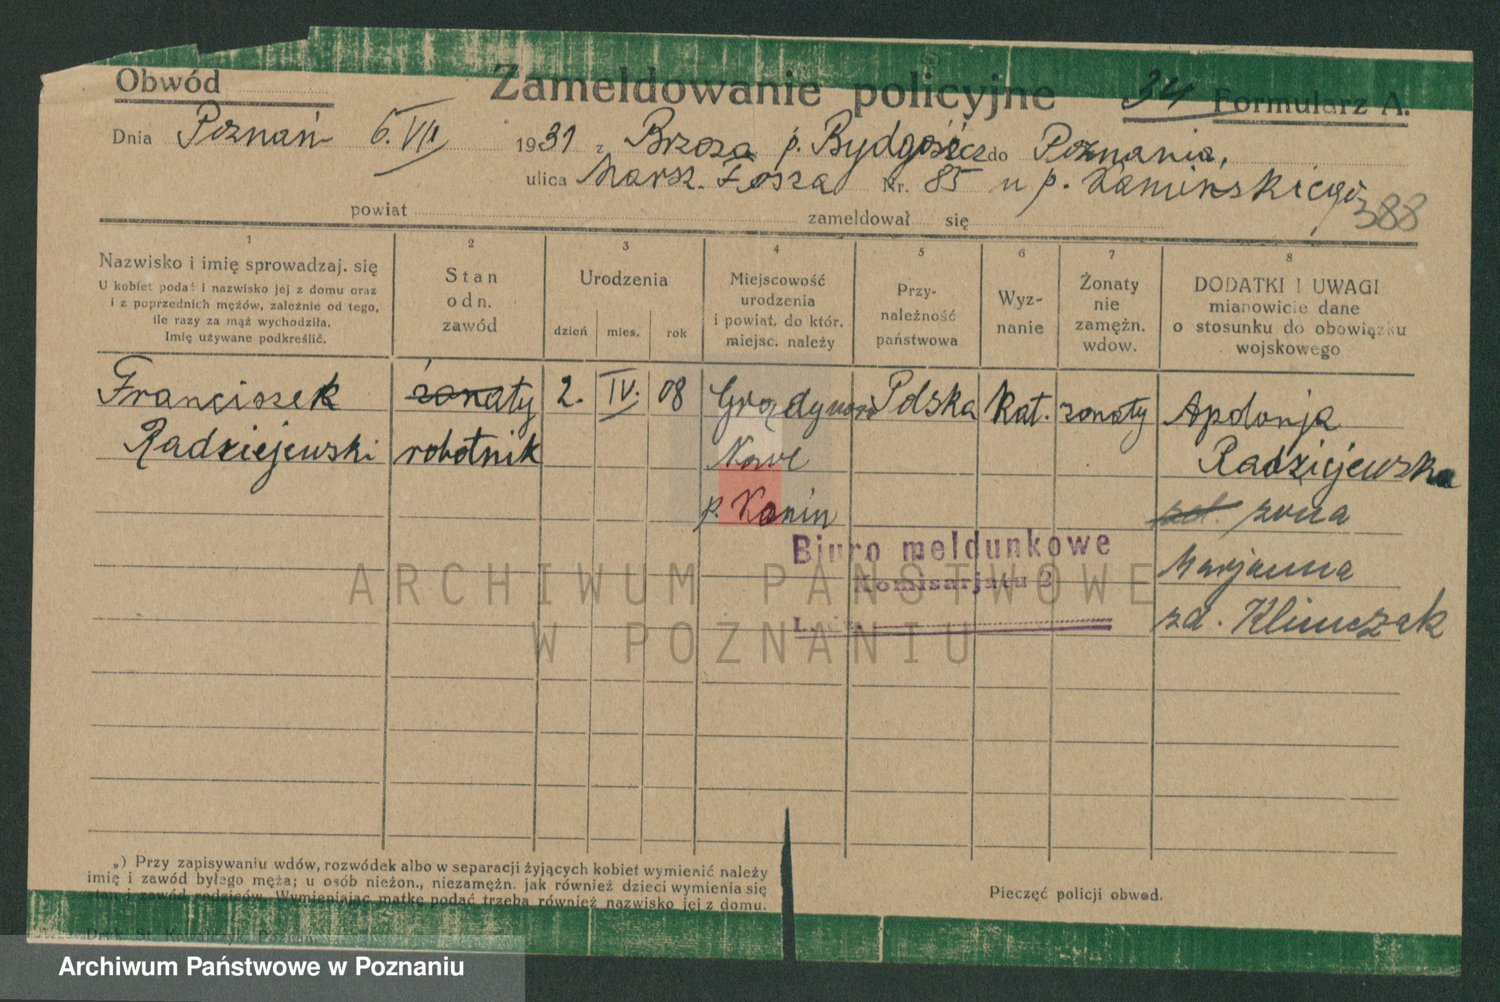 Obwód
Zameldowanie policyjne
34 Formularz A.
Dnia Poznań 6. VII 1931 z Brzoza p. Bydgoszcz do Poznania,
ulica Marsz. Fosza Nr. 85 u p. Kamińskiego
388
powiat zameldował się
1 2 3 4 5 6 7 8
Nazwisko i imię sprowadzaj. się
U kobiet podać i nazwisko jej z domu oraz
i z poprzednich mężów, zależnie od tego,
ile razy za mąż wychodziła.
Imię używane podkreślić.
Stan
odn.
zawód
Urodzenia
dzień mies. rok
Miejscowość
urodzenia
i powiat, do któr.
miejsc. należy
Przy-
należność
państwowa
Wyz-
nanie
Żonaty
nie
zamężn.
wdow.
DODATKI I UWAGI
mianowicie dane
o stosunku do obowiązku
wojskowego
Franciszek żonaty 2. IV. 08 Polska Kat. żonaty Apolonja
Radziejewski robotnik Nowe Radziejewska
p. Konin żona
Marjanna
zd. Klimczak
Biuro meldunkowe
Komisarjatu 2
ARCHIWUM PAŃSTWOWE
W POZNANIU
„) Przy zapisywaniu wdów, rozwódek albo w separacji żyjących kobiet wymienić należy
imię i zawód byłego męża; u osób nieżon., niezamężn. jak również dzieci wymienia się
stan i zawód rodziców. Wymieniając matkę podać trzeba również nazwisko jej z domu.
Pieczęć policji obwod.
Archiwum Państwowe w Poznaniu